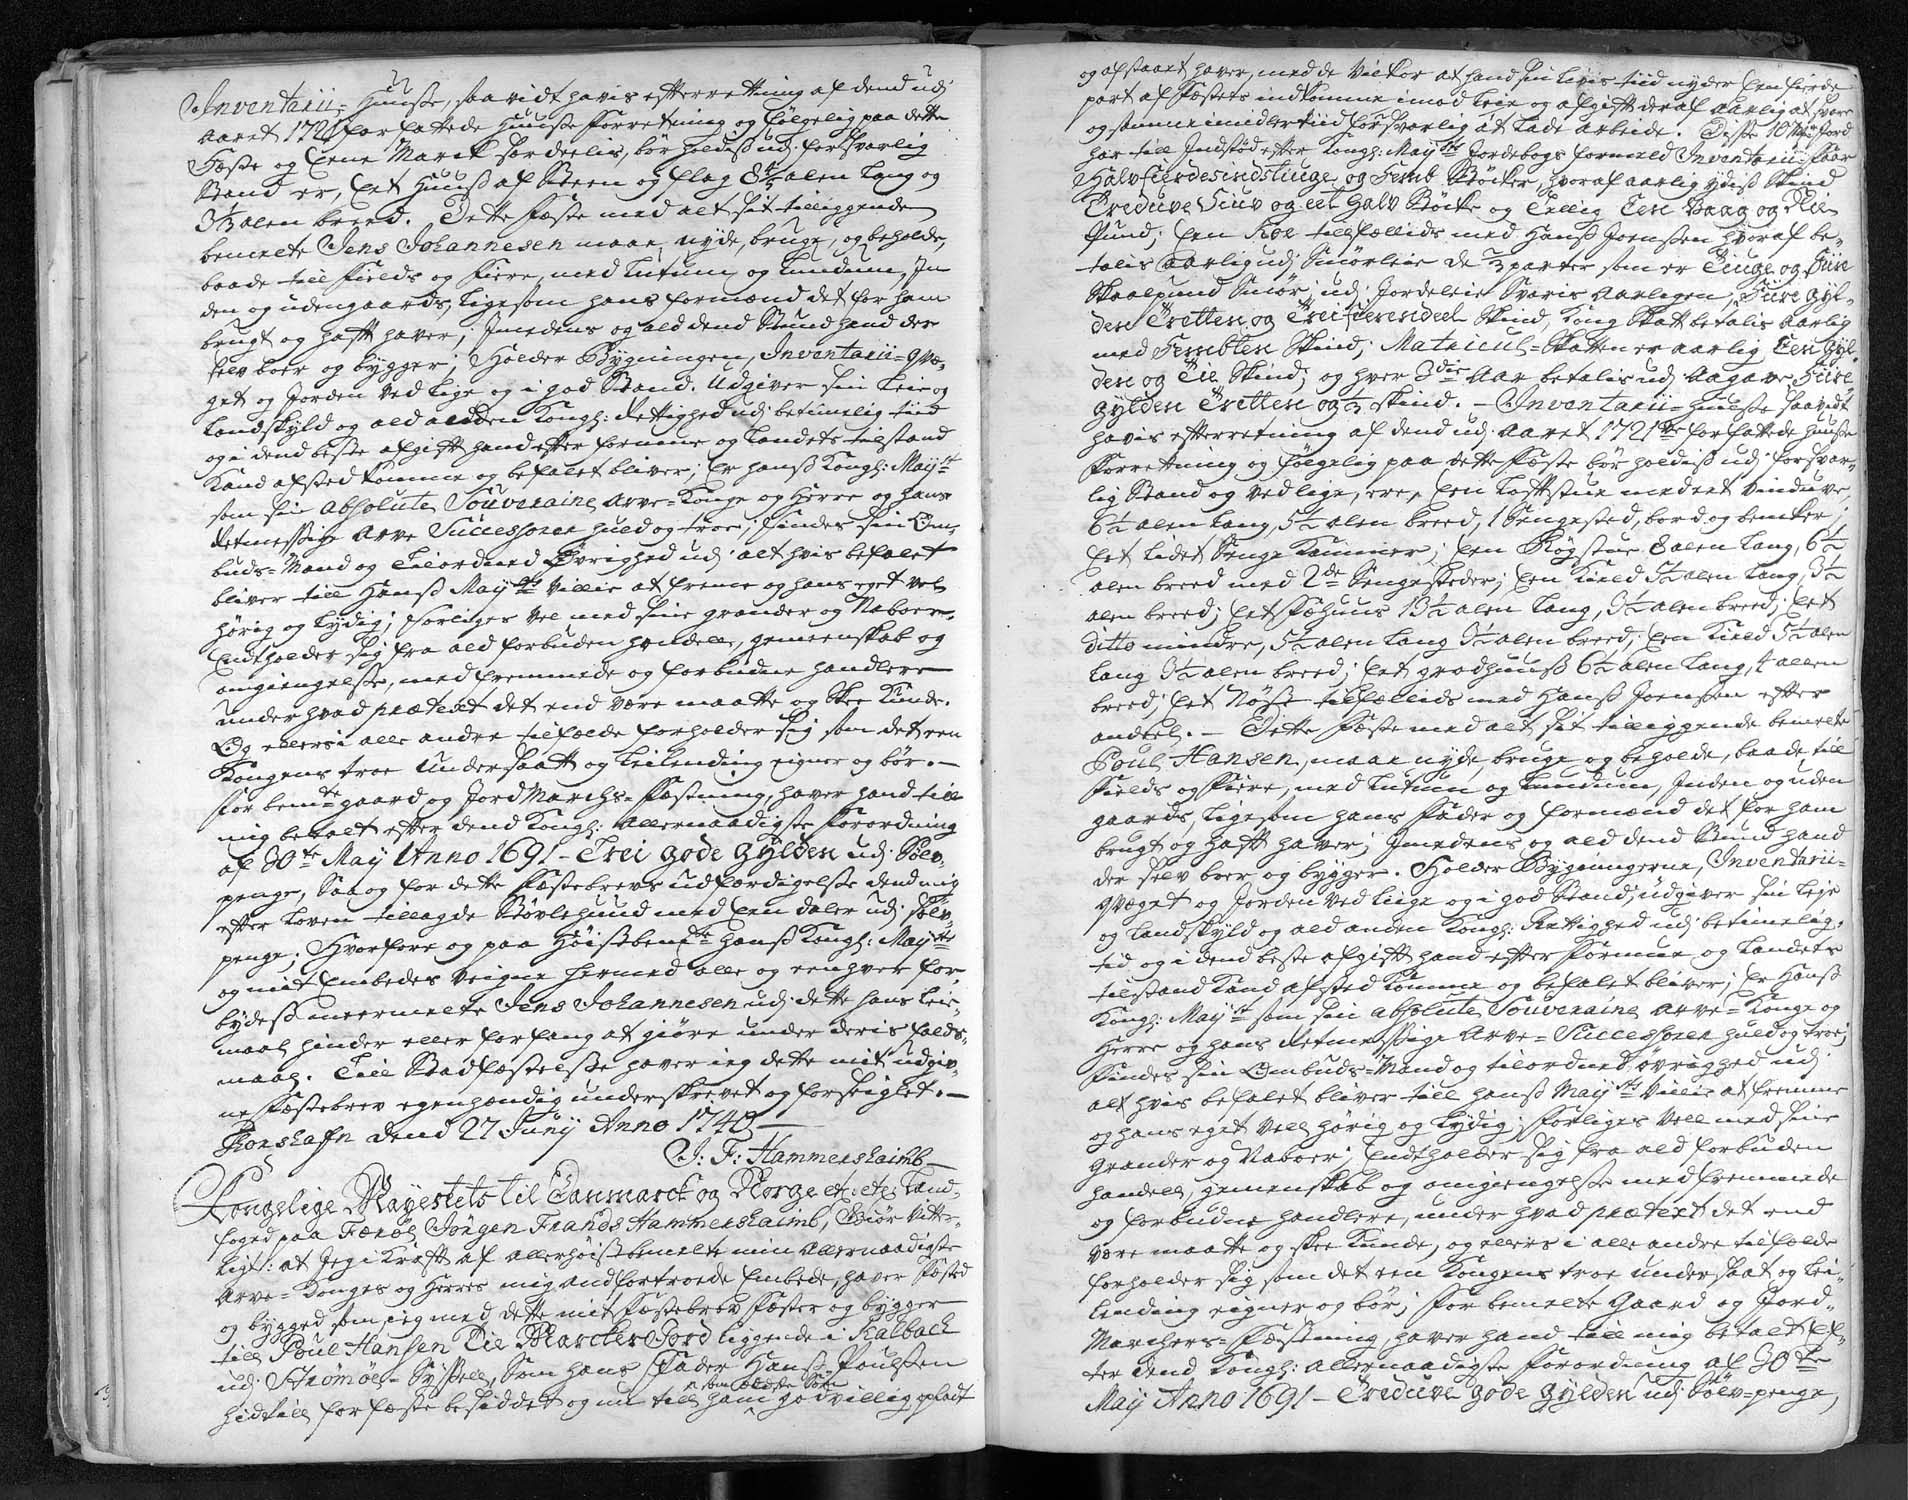 Inventarii-Huuse, saavidt havis efterretning af dend udj
Aaret 1721 forfattede Huuse Forretning og følgelig paa dette
Fæste og Eene Marck særdeelis, bør holdes udj forsvarlig
Stand er, Eet Huus af Steen og flag 8½ alen lang og
3½ alen breed. Dette Fæste med alt sit tilliggende
bemelte Jens Johannesen maae nyde, bruge, og beholde,
baade till Fields og Fiere, med Lutum og Lundum, In
den og udengaards, ligesom hans formænd det for ham
brugt og hafft haver; Imedens og ald dend Stund hand der
selv boer og bygger; Holder Bygningen, Inventarii-Qvæ-
get og Jorden ved lige og i god Stand. Udgiver sin Leie og
Landskyld og ald anden Kongl: Rettighed udj betimelig tiid
og i dend beste afgifft hand efter formue og Landets tilstand
Kand afsted komme og befalet bliver; Er hanß Kongl: Mayst
som sin absolute Souveraine Arve-Konge og Herre og hans
Retmessige Arve Successorer huld og troe; findes sin Om-
buds-Mand og Tilordned Øvrighed udj alt hvis befalet
bliver till Hanß Mayts Villie at freme og hans eget vel
hørig og lydig; forliges vel med sine grander og Naboer,
Endtholder sig fra ald forbuden handell, gemeenskab og
omgiengelse, med fremmede og forbudne handlere
under hvad prætext det end være maatte og skee kunde.
Og ellers i alle andre tilfælde forholder sig som det een
Kongens troe undersaatt og Leilending eigner og bør.–
For bemte gaard og Jord Marchs-Fæstning, haver hand till
mig betalt efter dend Kongl: Allernaadigste Forordning
af 30te May Anno 1691 - Trei gode Gylden udj Sølv-
penge, Saa og for dette Fæstebrevs udfærdigelse dend mig
efter Loven tillagde Støvlehuud med Een daler udj Sølv-
penge; Hvorfore og paa Høistbemte Hanß Kongl: Mayts
og mit Embedes Veigne hermed alle og eenhver for-
bydeß meermelte Jens Johannesen udj dette hans Leie-
maal hinder eller forfang at giøre under deris falds-
maal. Till Stadfæstelse haver ieg dette mit udgiv-
ne Fæstebrev egenhændig underskrevet og forseiglet.–
Thorshafn dend 27 Junij Anno 1740 –
J: F: Hammershaimb –
Kongelige Mayestets til Danmarck og Norge etc: etc: Land-
foged paa Færøe Jørgen Frands Hammershaimb, Giør Vitter-
ligt: at Jeg i Kraft af allerhøistbemelte min Allernaadigste
Arve-Konges og Herres mig andfortroede Embede, haver fæsted
og bygged som ieg med dette mit Fæstebrev Fæster og bygger
till Poul Hansen Tie Marcker Jord liggende i Kalback
udj Strømøe-Syssell, Som hans Fader Hanß Poulsen
som ældste Søn
hidtill for fæste besiddet og nu till ham godvillig opladt
og afstaaet haver, med de Vilkor at hand sin Livs tiid nyder Een fierde
part af Fæstets indkomme imod Leie og afgifft deraf aarlig at svare
og samme imidlertiid forsvarlig at lade arbeide. Disse 10 Mker Jord
har till Indstød efter Kongl: Mayts Jordebogs formeld Inventarii-faar
Halvfierdesindstiuge og Femb Stöcker, hvoraf aarlig ydes Skind
Treduve Siuv og eet Halv Stöcke og Tellig Een Vaag og Otte
Pund; Een Koe tilfællids med Hanß Joensen hvoraf be-
talis aarlig udj Smørleie de ⅔ parter som er Tiuge og Siu
Skaalpund Smør; udj Jordeleie Svaris Aarligen, Fiire Gyl-
den Tretten og Trei fierendeel Skind, Kong Skatt betalis Aarlig
med Fembten Skind; Matricul-Skatten er aarlig Een Gyl-
den og Tie Skind; og hver 3die Aar betalis udj Aagave Fiire
Gylden Tretten og ½ skind. – Inventarii-Huuse saavidt
havis efterretning af dend udj Aaret 1721de forfattede Huuse
Forretning og følgelig paa dette Fæste bør holdis udj forsvar-
lig Stand og ved lige, ere, Een Loftstue med eet Vindue
6½ alen lang, 5½ alen breed, 1 Sengested, bord og bencker;
Eet lidet Senge Kammer; Een Røgstue 8 alen lang, 6½
alen breed med 2de Sengesteder; Een Kield 5½ alen lang, 3½
alen breed; Eet Fæhuus 13½ alen lang, 3½ alen breed; Eet
ditto mindre, 5½ alen lang 3½ alen breed; Een Kield 5½ alen
lang 3½ alen breed; Eet grodhuuß 6½ alen lang, 4 allen
breed; Eet Nøst tilfællids med Hanß Joensen efter
andeel. – Dette Fæste med alt sit tilliggende bemelte
Poul Hansen, maae nyde, bruge og beholde, baade till
Fields og Fiere, med Lutum og Lundum, Inden og uden
gaards, ligesom hans Fader og formænd det for ham
brugt og hafft haver; Imedens og ald dend Stund hand
der selv boer og bygger. Holder Bygningerne, Inventarii-
Qvæget og Jorden ved liige og i god Stand; udgiver sin Leje
og Landskyld og ald anden Kongl: Rettighed udj betimelig
tid og i dend beste afgifft hand efter Formue og Landets
tilstand Kand afsted Komme og befalet bliver; Er Hanß
Kongl: Mayst som sin absolute Souveraine Arve-Konge og
Herre og hans Retmessige Arve-Successorer huld og troe;
Findes sin Ombuds-Mand og tilordned øvrighed udj
alt hvis befalet bliver till Hanß Mayts Villie at fremme
og hans eget Vell hørig og lydig; Forliges Vell med sine
Grander og Naboer; Endtholder sig fra ald forbuden
handell, gemenskab og omgiengelse med fremmede
og forbudne handlere, under hvad prætext det end
være maatte og skee kunde, og ellers i alle andre tilfælde
forholder sig som det een Kongens troe undersaat og Lei-
lending eigner og bør; For bemelte Gaard og Jord-
Marchers-Fæstning, haver hand till mig betalt ef-
ter dend Kongl: allernaadigste Forordning af 30te
May Anno 1691 - Treduve gode gylden udj Sølv-penge,